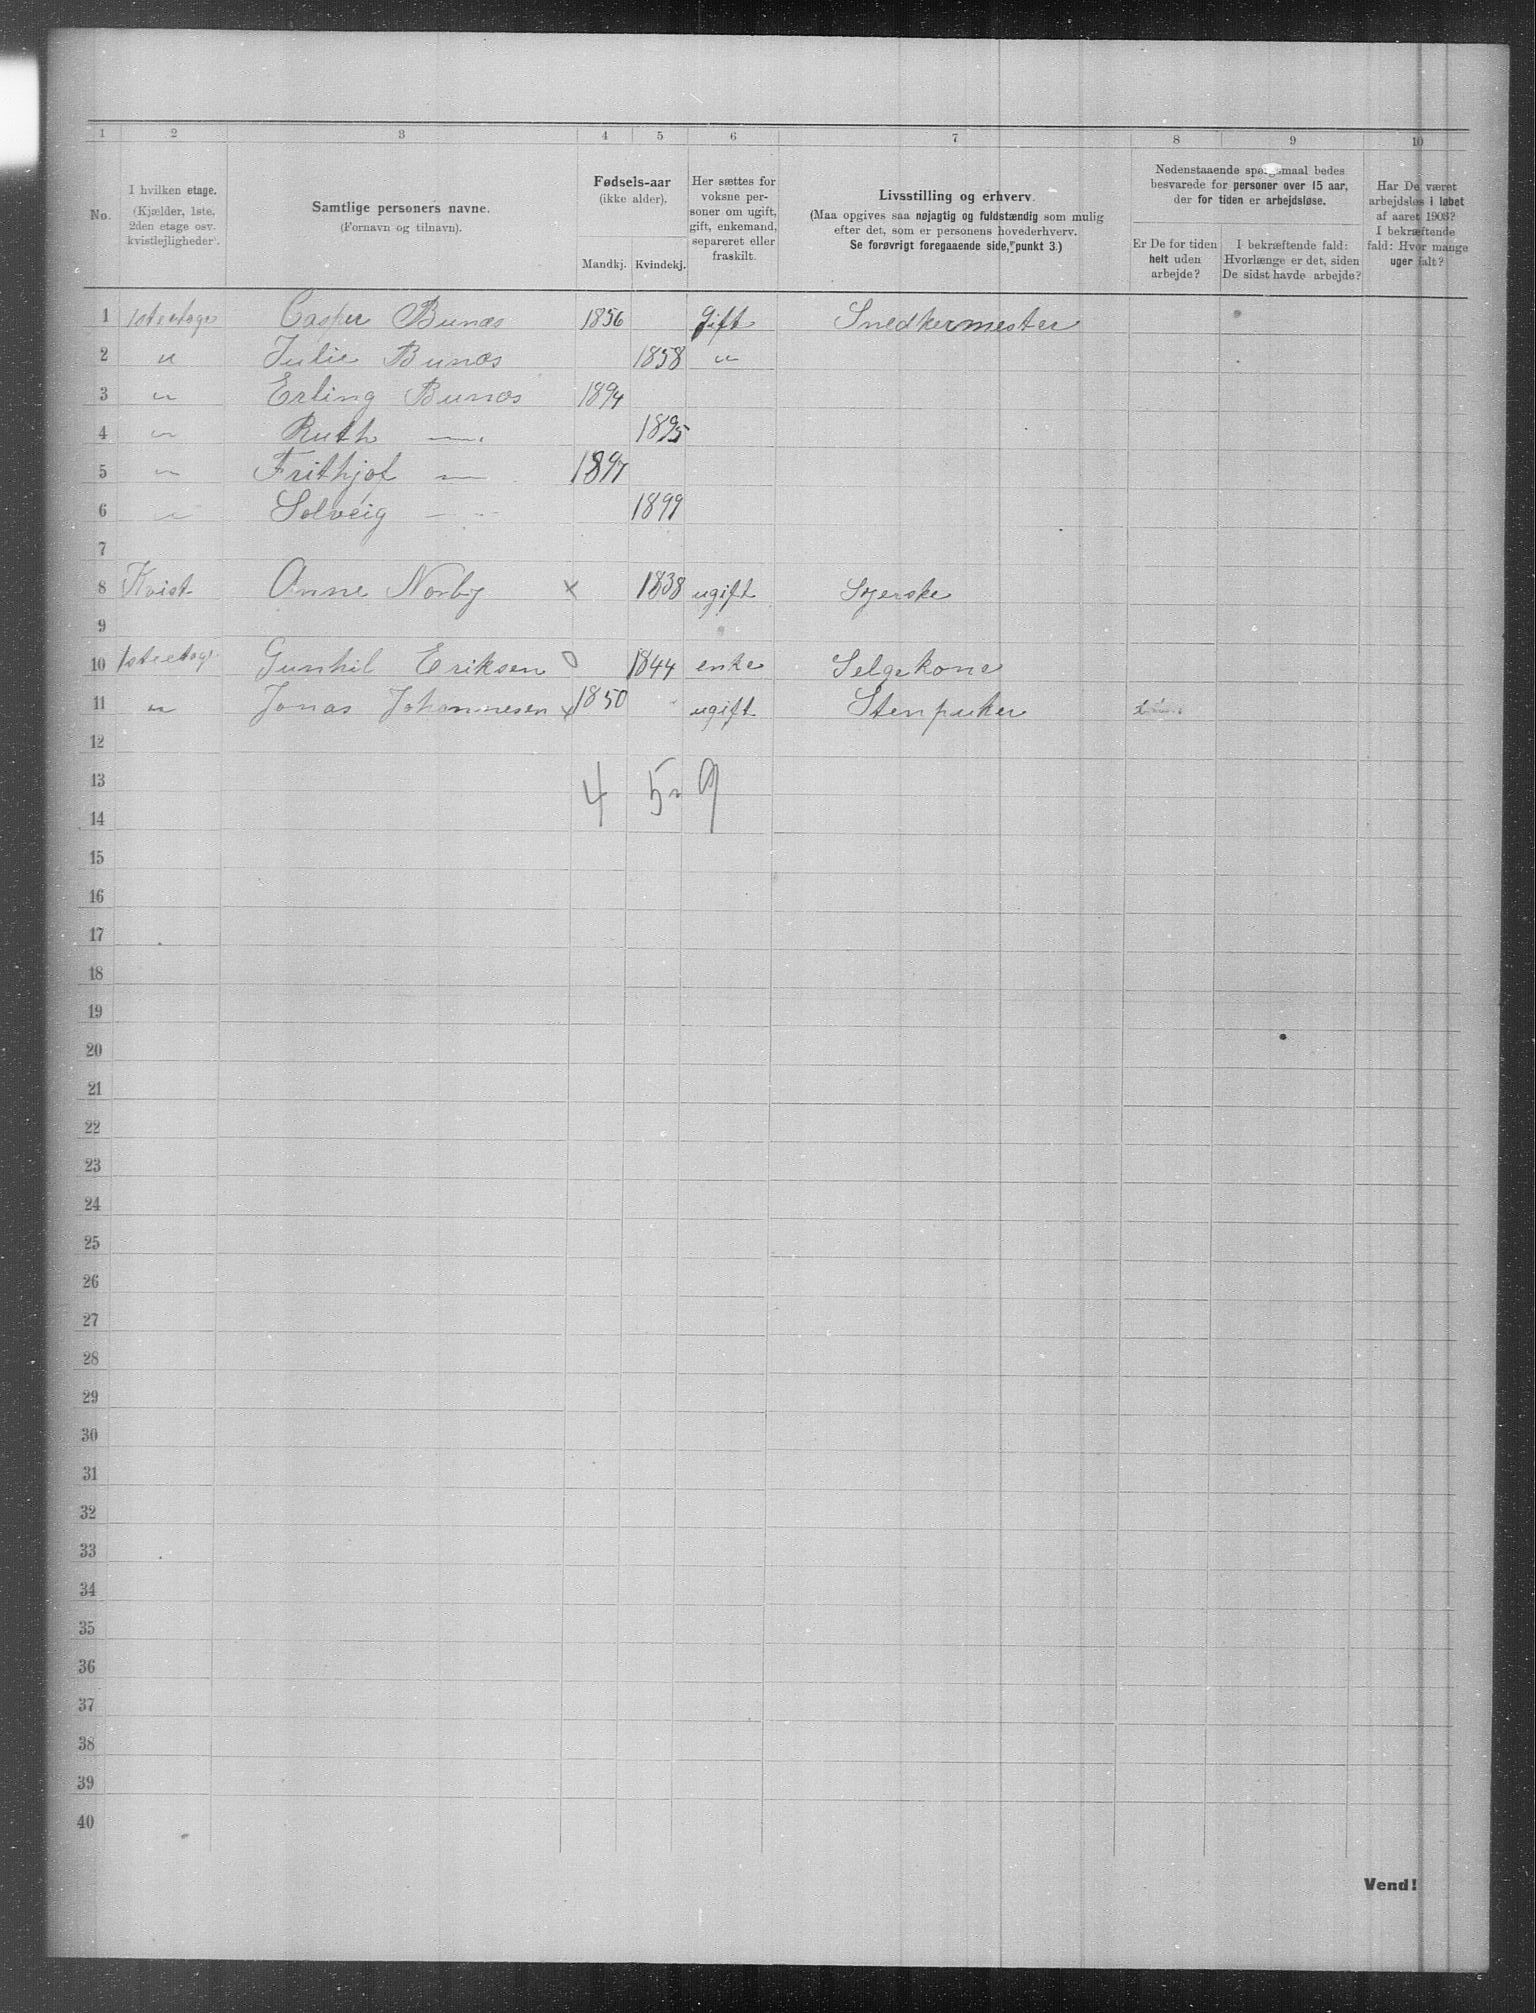 1 2 3 4 5 6 7 8 9 10
No.
I hvilken etage.
(Kjælder, 1ste,
2den etage osv.
kvistlejligheder).
Samtlige personers navne.
(Fornavn og tilnavn).
Fødsels-aar
(ikke alder).
Mandkj. Kvindekj.
Her sættes for
voksne per-
soner om ugift,
gift, enkemand,
separeret eller
fraskilt.
Livsstilling og erhverv.
(Maa opgives saa nøjagtig og fuldstændig som mulig
efter det, som er personens hovederhverv.
Se forøvrigt foregaaende side, punkt 3.)
Nedenstaaende spørgsmaal bedes
besvarede for personer over 15 aar,
der for tiden er arbejdsløse.
Er De for tiden
helt uden
arbejde?
I bekræftende fald:
Hvorlænge er det, siden
De sidst havde arbejde?
Har De været
arbejdsløs i løbet
af aaret 1903?
I bekræftende
fald: Hvor mange
uger ialt?
1 1ste etage Casper Bunæs 1856 gift Snedkermester
2 " Julie Bunæs 1858 "
3 " Erling Bunæs 1894
4 " Ruth — 1895
5 " Frithjof — 1897
6 " Solveig — 1899
7
8 Kvist Anne Norby x 1838 ugift Syerske
9
10 1ste etage Gunhil Eriksen o 1844 enke Selgekone
11 " Jonas Johannesen x 1850 ugift Stenpuker
12
13
4 5 = 9
14
15
16
17
18
19
20
21
22
23
24
25
26
27
28
29
30
31
32
33
34
35
36
37
38
39
40
Vend!